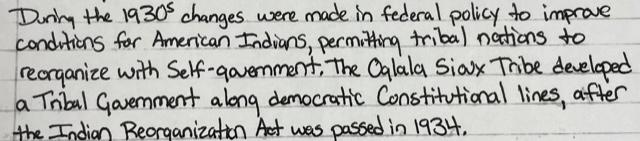 During the 1930s changes were made in federal policy to improve
conditions for American Indians, permitting tribal nations to
reorganize with Self-government. The Oglala Sioux Tribe developed
a Tribal Government along democratic Constitutional lines, after
the Indian Reorganization Act was passed in 1934.